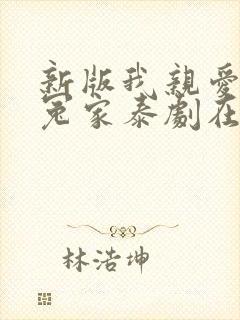 新版我親愛
冤家泰劇在
林浩坤